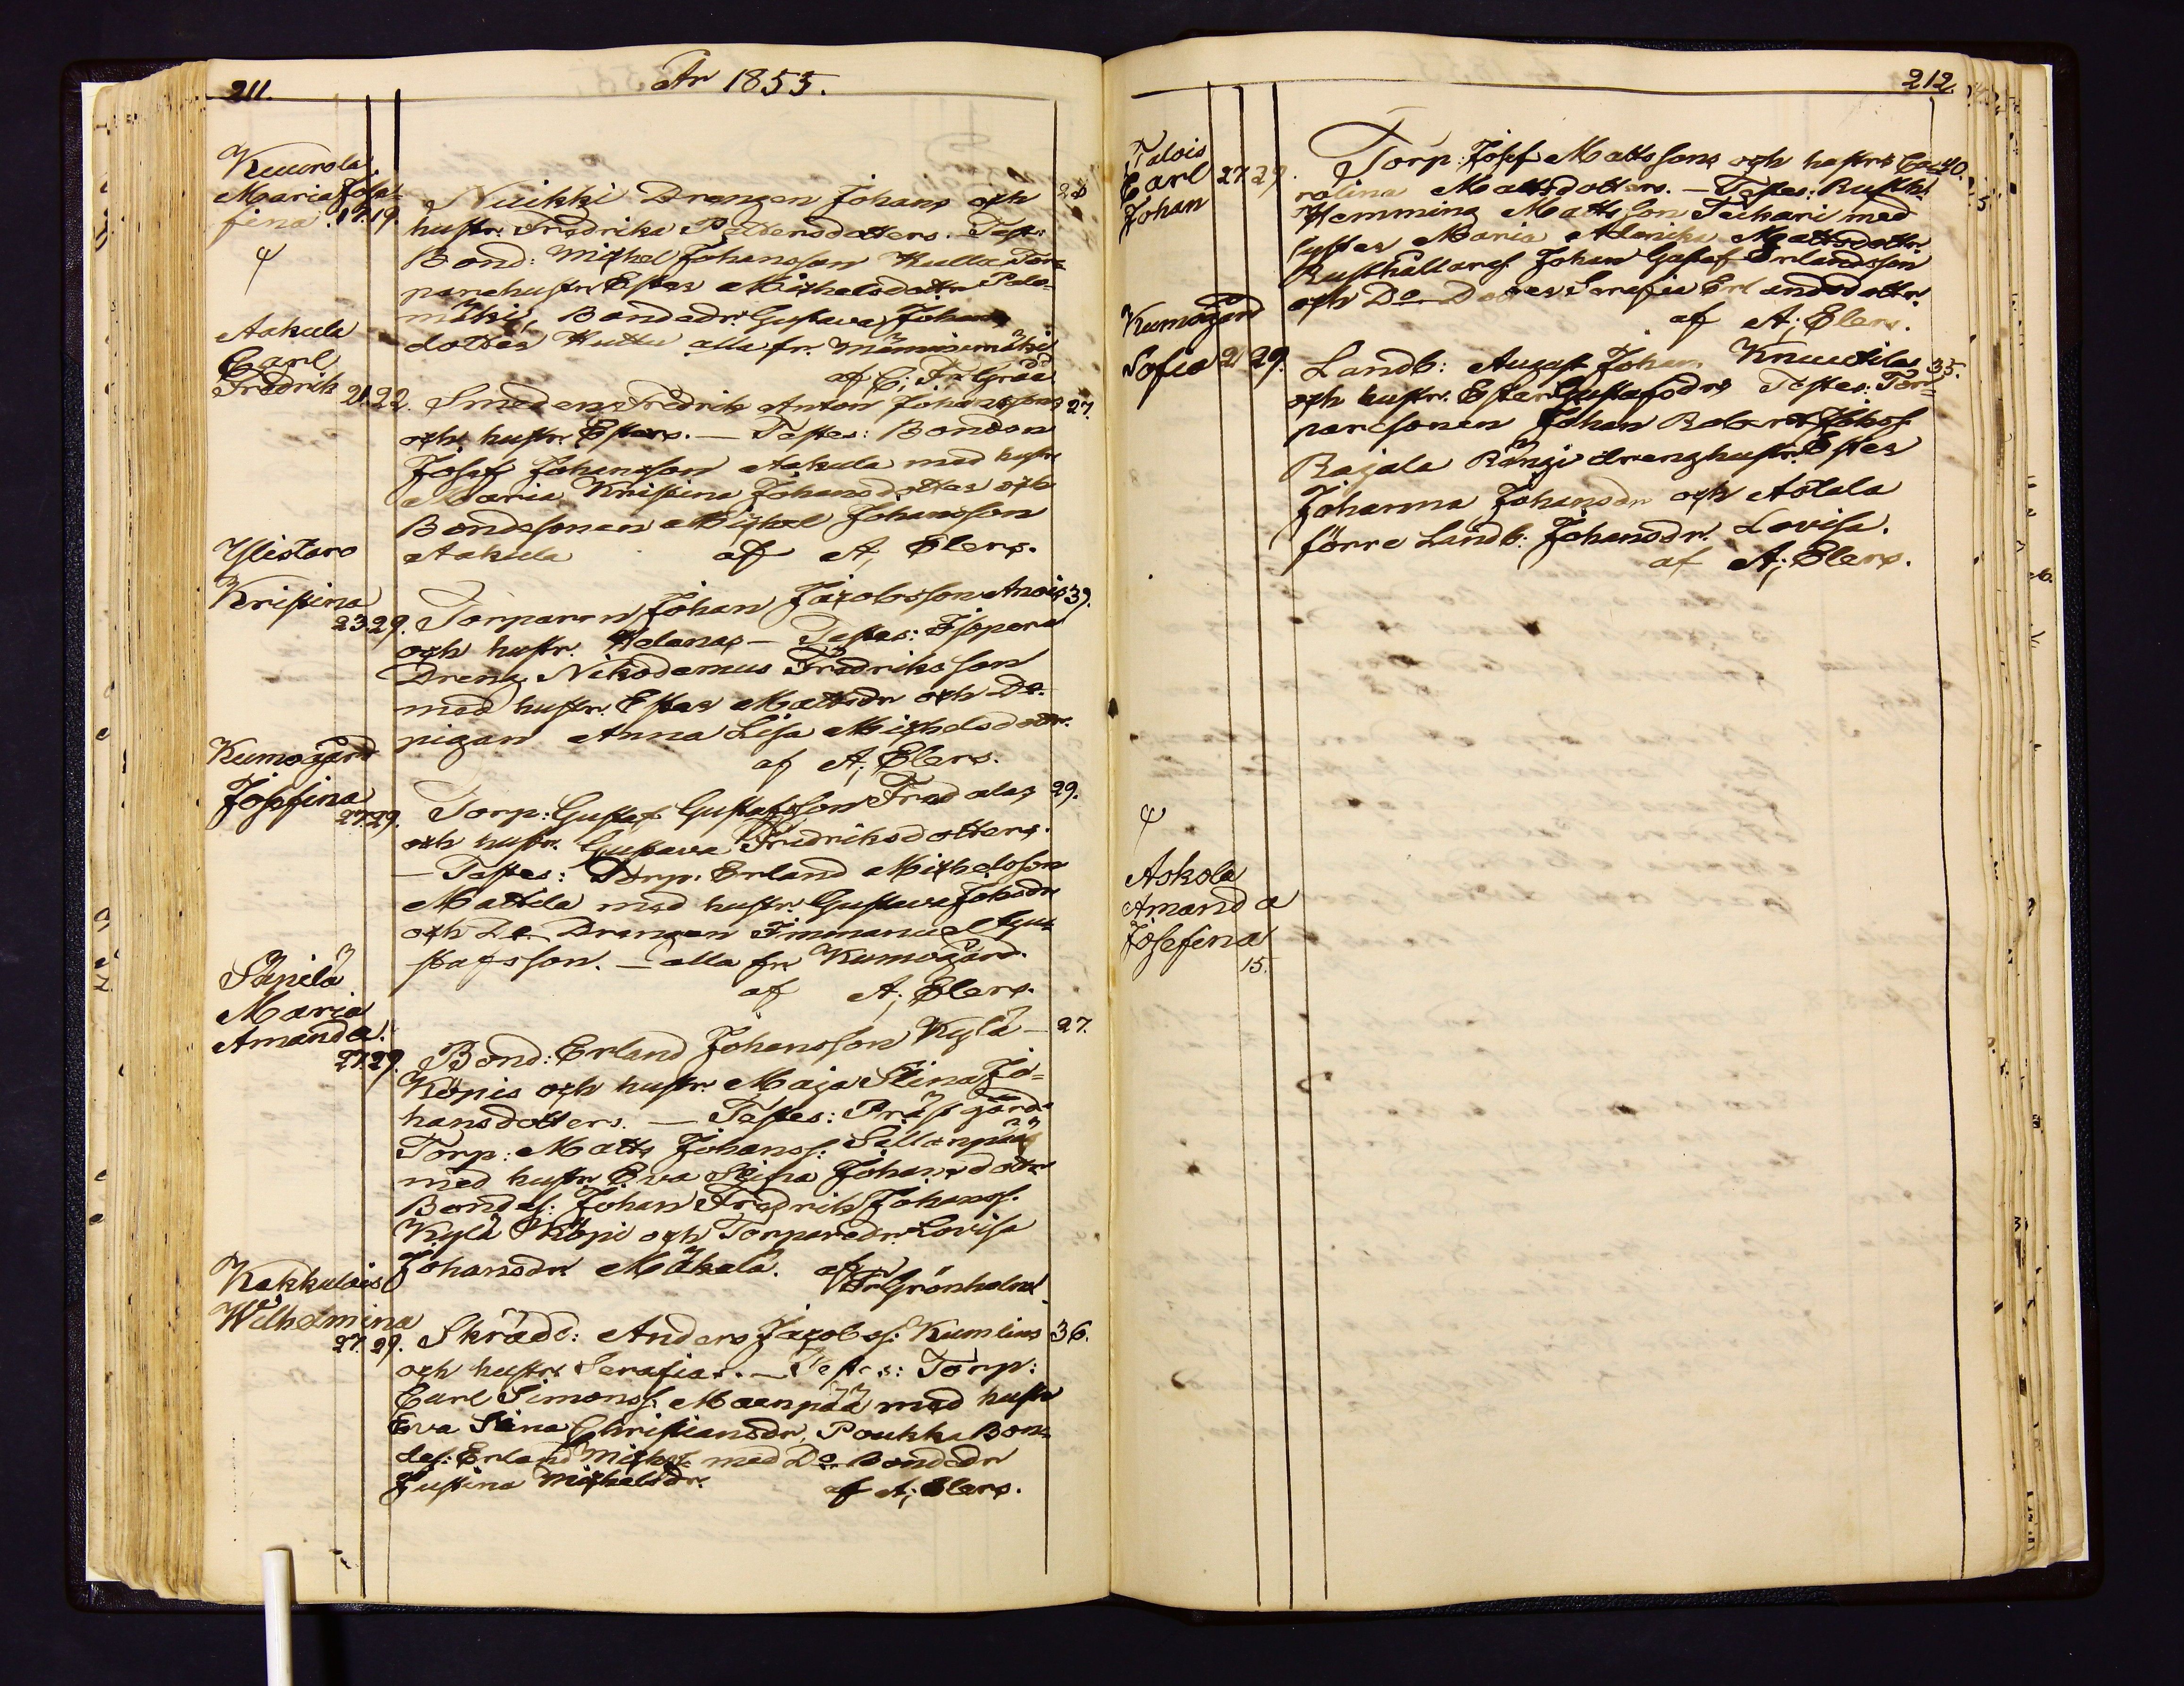 211.
År 1853.
Kuurola
Maria Josa-
fina. 17. 19.
Niikki Drengen Johans och 28
hustr. Fredrika Pettersdotters. Test:
Bond: Michel Johansson Hutta Tor-
parehustr. Ester Michelsdottr Palo-
mäki, Bondedr. Gustava Johans
dotter Huttu alla fr. Männismäki
af C; Fr. Gråå
Aakula
Carl
Fredrik 21. 22. Smeden Fredrik Anton Johanssons 27.
och hustr. Esters. — Testes: Bonden
Josef Johansson Aakula med hustr
Maria Kristina Johansdotter och
Bondesonen Michel Johansson
Aakula af A; Elers.
Ylistaro
Kristina
23. 29. Torparen Johan Jacobsson Anois 39.
och hustr. Helenas — Testes:
Dreng. Nikodemus Fredriksson
med hustr. Ester Mattsdr och Do
pigan Anna Lisa Michelsdottr.
af A; Elers.
Kumogård
Josefina
27. 29. Torp: Gustaf Gustafsson 29.
och hustr. Gustava Fredriksdotters.
— Testes: Torp. Erland Michelsson
Mattila med hustr. Gustava Johsdr
och Do Drengen Immanuel Gus-
tafsson. — alla fr. Kumogård.
af A; Elers.
Säpilä
Maria
Amanda.
27. 29. Bond: Erland Johansson Kylä — 27.
Köpis och hustr. Maja Stina Jo-
hansdotters. — Testes: Prästgårds
Torp: Matts Johanss: Sillanpää
med hustr. Eva Stina Johansdotr
Bondes: Johan Fredrik Johanss.
Kylä Köpi och Torparedr. Lovisa
Johansdr Mäkelä. af Fr Grönholm
Kakkulais
Wilhelmina
27. 29. Skrädd: Anders Jacobss: Kumlins 36.
och hustrs Serafias. — Testes: Torp:
Carl Simonss. Maenpää med hustr
Eva Stina Christiansdr, Poukka Bon-
des: Erland Michelss. med Do Bondedr
Justina Michelsdr. af A; Elers.
212.
Talois
Carl 27. 29. Torp: Josef Mattssons och hustrs Ca- 40.
Johan
rolina Mattsdotters. — Testes: Rusth.
Hemming Mattsson Teikari med
syster Maria Mattsdottr.
Rusthållares. Johan Gustaf Erlandsson
och Do Dotter Serafia Erlandsdottr.
af A; Elers.
Kumogård
Sofia 2 29. Landb: August Johan Knuutilas 35.
och hustr. Ester Gustafsdrs Testes: Tor-
paresonen Johan Robert Johss.
Rajala drenghustr. Ester
Johanna Johansdr och Aotala
förre Landb: Johansdr. Lovisa.
af A; Elers.
Askola
Amanda
Josefina
15.